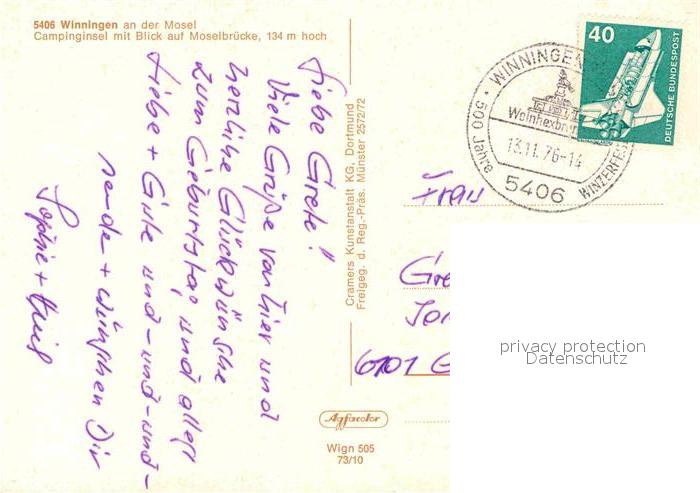 5406 Winningen an der Mosel
Campinginsel mit Blick auf Moselbrücke, 134 m hoch
Liebe Grete!
Viele Grüße von hier und
herzliche Glückwünsche
zum Geburtstag und alles
Liebe + Gute und-und-und-
sende + wünschen Dir
Sophie +
Cramers Kunstanstalt KG, Dortmund
Freigeg. d. Reg.-Präs. Münster 2572/72
Agfacolor
Wign 505
73/10
40
DEUTSCHE BUNDESPOST
WINNINGEN
Weinhexbr
13.11.76-14
5406
500 Jahre
WINZERFES
Frau
Gre
6101 G
privacy protection
Datenschutz